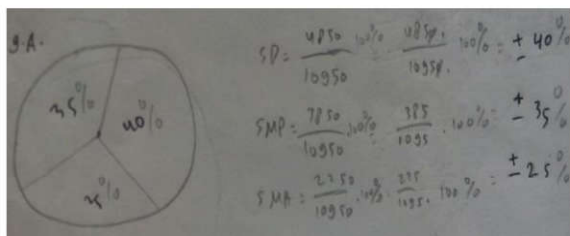 9.A.
35%
40%
25%
SD = 4850/10950 · 100% = 485/1095 · 100% = ± 40%
SMP = 3850/10950 · 100% = 385/1095 · 100% = ± 35%
SMA = 2250/10950 · 100% = 225/1095 · 100% = ± 25%